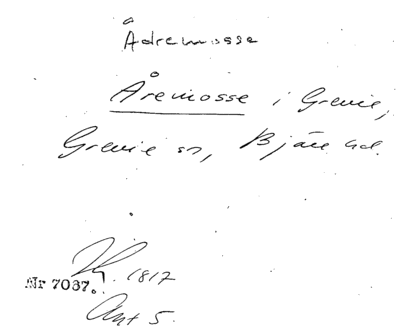 Ådremosse
Åremosse i Grevie,
Grevie sn, Bjäre hd.
1817
Nr 7037.
Ant 5.